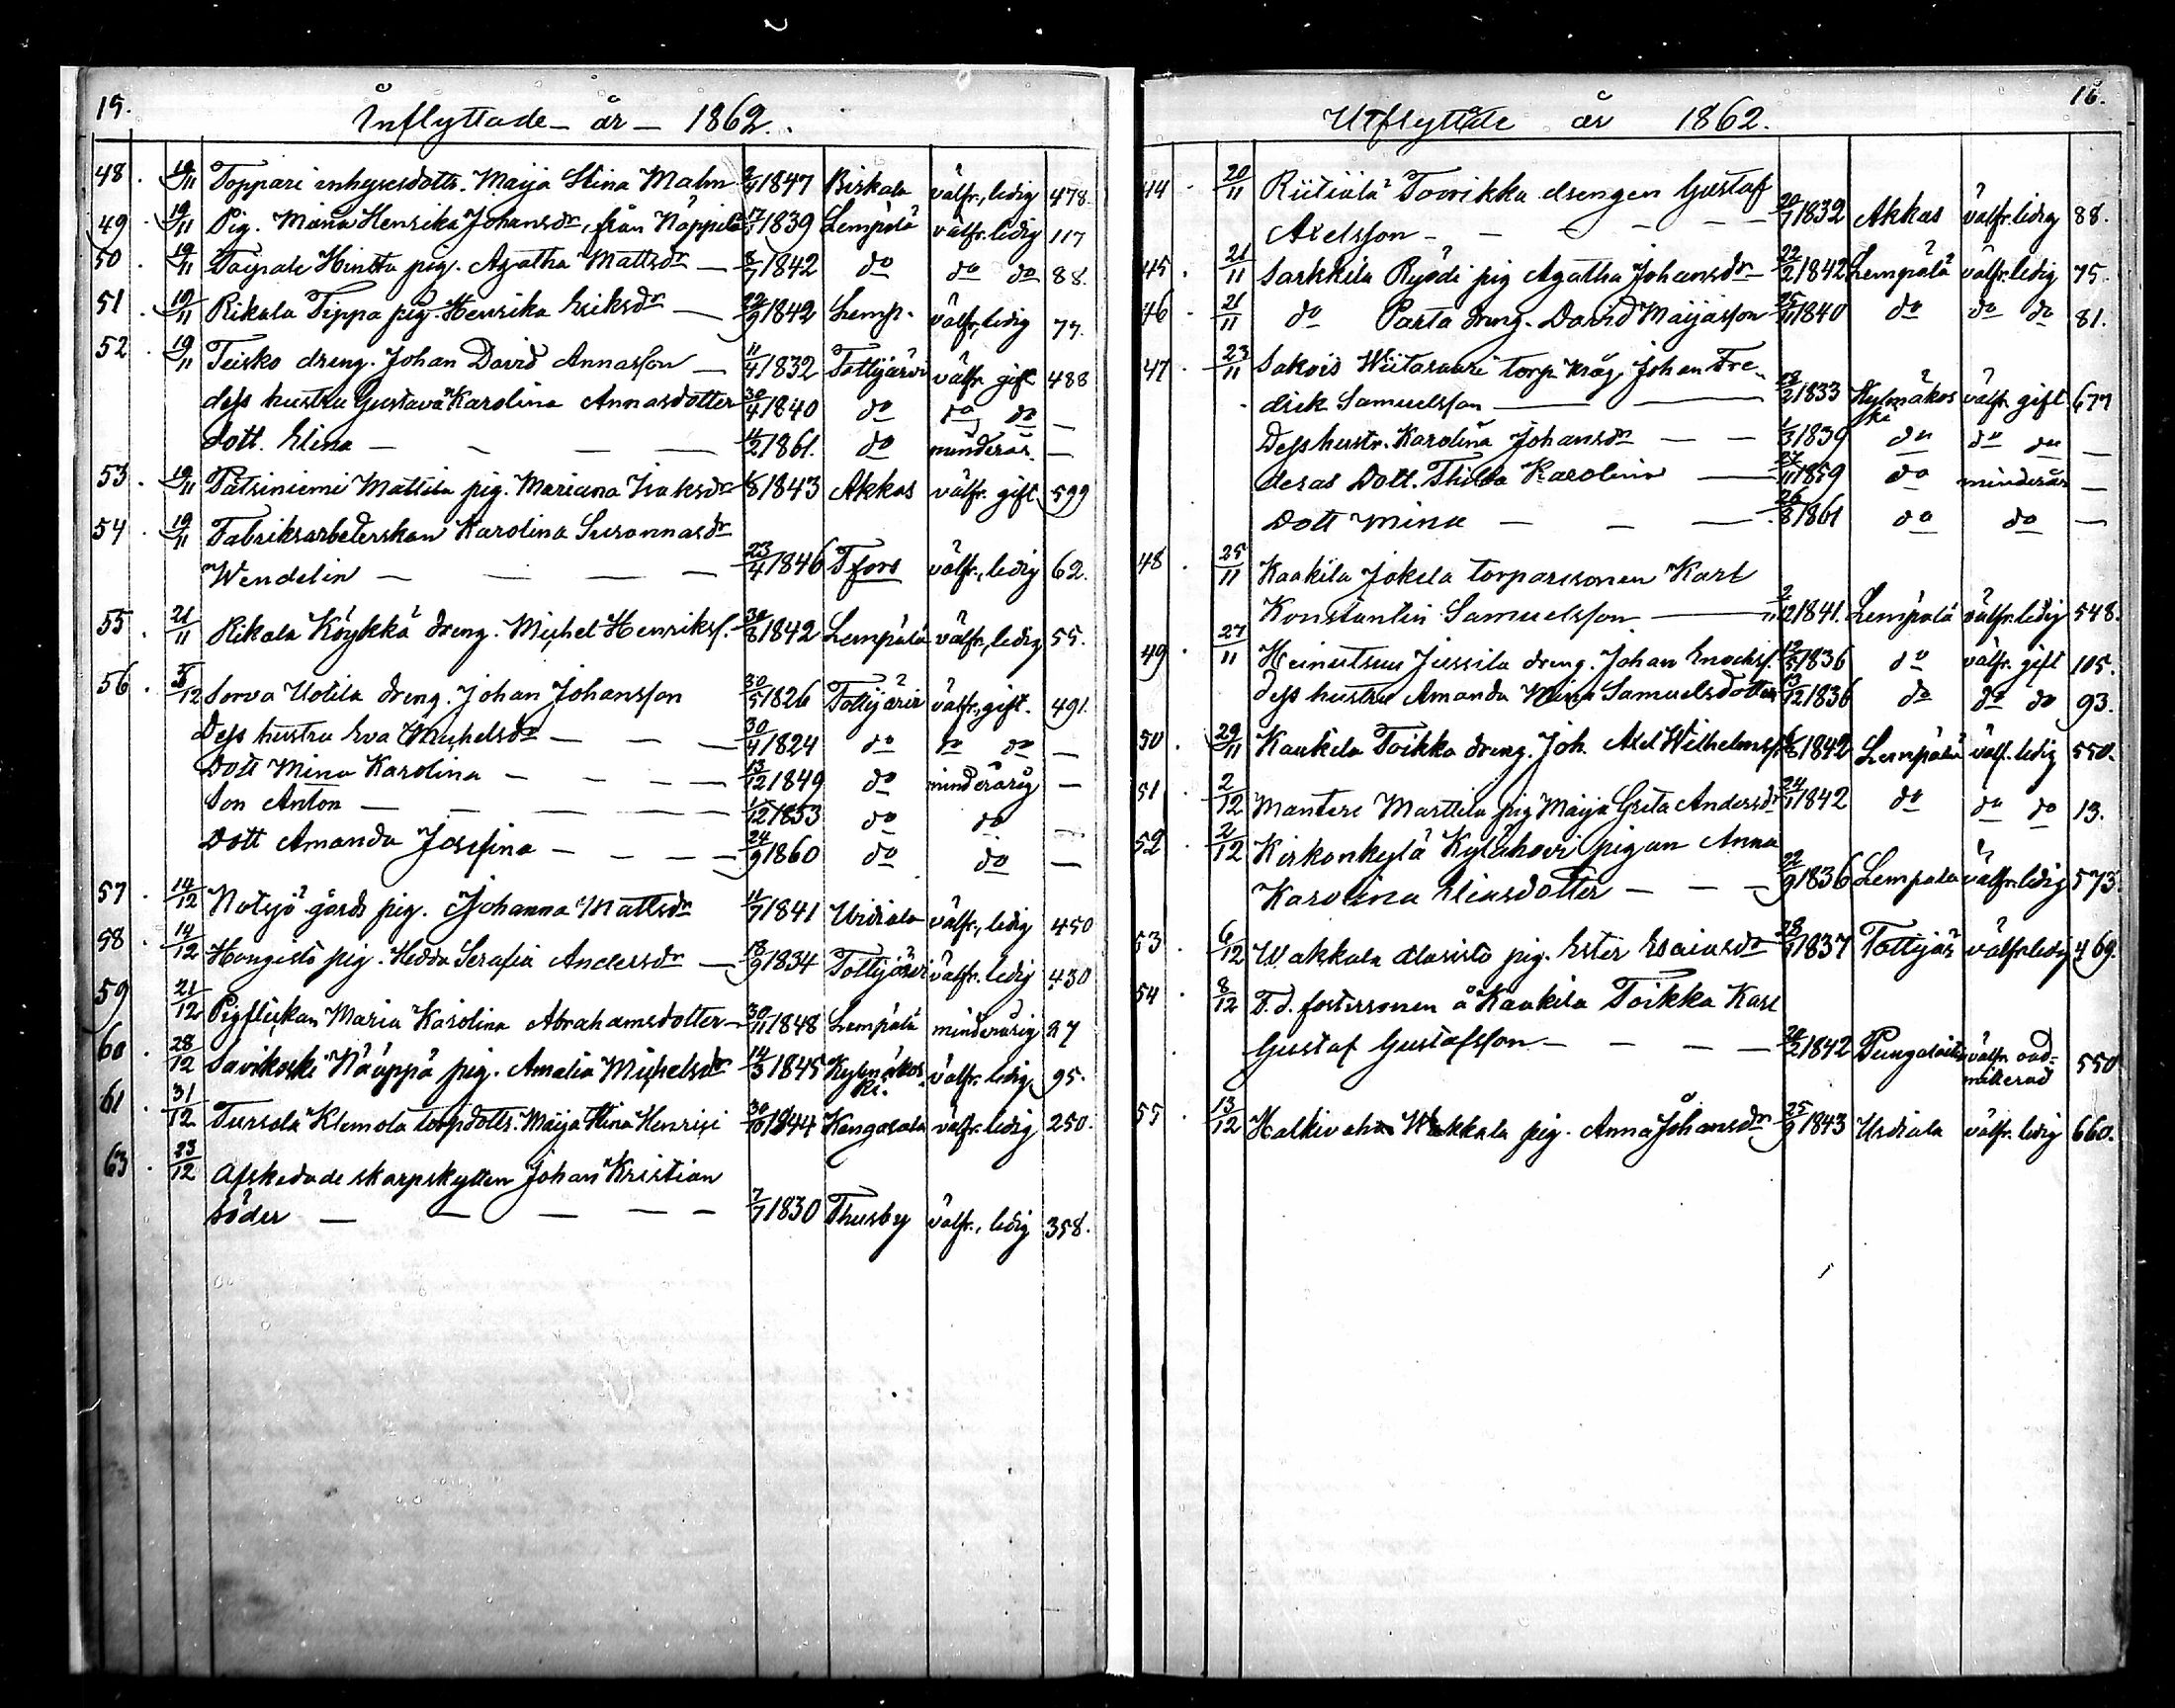 15.
Inflyttade - år - 1862.
48. 19/11 Toppari inhysesdottr. Maija Stina Malm 2/4 1847 Birkala välfr., ledig 478.
49. 19/11 Pig. Maria Henrika Johansdr, från Näppilä 17/7 1839 Lempälä välfr. ledig 117
50. 19/11 Hintta pig. Agatha Mattsdr — 8/7 1842 do do do 88.
51. 19/11 Rikala Tippa pig. Henrika Eriksdr — 22/9 1842 Lemp. välfr., ledig 77.
52. 19/11 Teisko dreng. Johan David Annasson — 11/4 1832 Tottijärvi välfr. gift 488
dess hustru Gustava Karolina Annasdotter 30/4 1840 do do do —
dott. Elina — — — 11/2 1861. do minderår. —
53. 19/11 Mattila pig. Mariana Isaksdr 1843 Akkas välfr. gift 599
54. 19/11 Fabriksarbeterskan Karolina Susannasdr
Wendelin — — — — 23/4 1846 Tfors välfr., ledig 62.
55. 21/11 Rikala Köykkä dreng. Michel Henrikss. 30/8 1842 Lempälä välfr., ledig 55.
56. 5/12 Sorva Uotila dreng. Johan Johansson 30/5 1826 Tottijärvi välfr., gift. 491.
Dess hustru Eva Michelsdr — — — 30/4 1824 do do do —
Dott Mina Karolina — — — — 13/12 1849 do minderårig —
Son Anton — — — — — 1/12 1853 do do —
Dott Amanda Josefina — — — — 24/9 1860 do do —
57. 14/12 Notsjö gårds pig. Johanna Mattsdr 11/7 1841 Urdiala välfr., ledig 450
58. 14/12 Hongisto pig. Hedda Serafia Andersdr — 18/9 1834 Tottijärvi välfr. ledig 430
59 21/12 Pigflickan Maria Karolina Abrahamsdotter — 30/11 1848 Lempälä minderårig 27
60. 28/12 Savikoski Nääppä pig. Amalia Michelsdr 14/3 1845 Kylmäkos- välfr. ledig 95.
ki.
61. 31/12 Tursola Klemola torpdottr. Maija Stina Henrici 30/10 1844 Kangasala välfr. ledig 250.
63. 23/12 Afskedade skarpskytten Johan Kristian
Söder — — — — — 7/7 1830 Thusby välfr., ledig 358.
16.
Utflyttade år 1862.
44. 20/11 Riitiälä Toorikka drengen Gustaf
Axelsson — — — — — 20/7 1832 Akkas välfr. ledig 88.
45. 21/11 Sarkkila Ryödi pig Agatha Johansdr — 22/2 1842 Lempälä välfr. ledig 75.
46. 21/11 do Parta dreng. David Maijasson 25/11 1840 do do do 81.
47. 23/11 Sakois Wiitasaari torp. måg. Johan Fre-
drik Samuelsson — — 18/2 1833 Kylmäkos välfr. gift. 677
ki
Dess hustr. Karolina Johansdr — — 1/3 1839 do do do —
deras Dott. Thilda Karolina — 27/11 1859 do minderår —
Dott Mina — — — 26/8 1861 do do —
48. 25/11 Kaakila Jokela torparesonen Karl
Konstantin Samuelsson — 2/12 1841. Lempälä välfr. ledig 548.
49. 27/11 Heinutsuu Jussila dreng. Johan Enochss. 12/5 1836 do välfr. gift 105.
Dess hustru Amanda Mina Samuelsdotter 13/12 1836 do do do 93.
50. 29/11 Kaukila Toikka dreng. Joh. Axel Wilhelmss. 1842 Lempälä välf. ledig 550.
51. 2/12 Mantere Marttila pig Maija Greta Andersdr 24/1 1842 do do do 13.
52. 2/12 Kirkonkylä Kylähovi pigan Anna
Karolina Eliasdotter — — — 22/9 1836 Lempälä välfr. ledig 573.
53. 6/12 Wakkala Alasisto pig. Ester Esaiasdr 28/9 1837 Tottijär välfr. ledig 469.
54. 8/12 F. d. fostersonen å Kaakila Toikka Karl
Gustaf Gustafsson — — — — 1842 Pungalaitio välfr. oad-
mitterad 550
55. 13/12 Halkivaha Wakkala pig. Anna Johansdr 25/9 1843 Urdiala välfr. ledig 660.